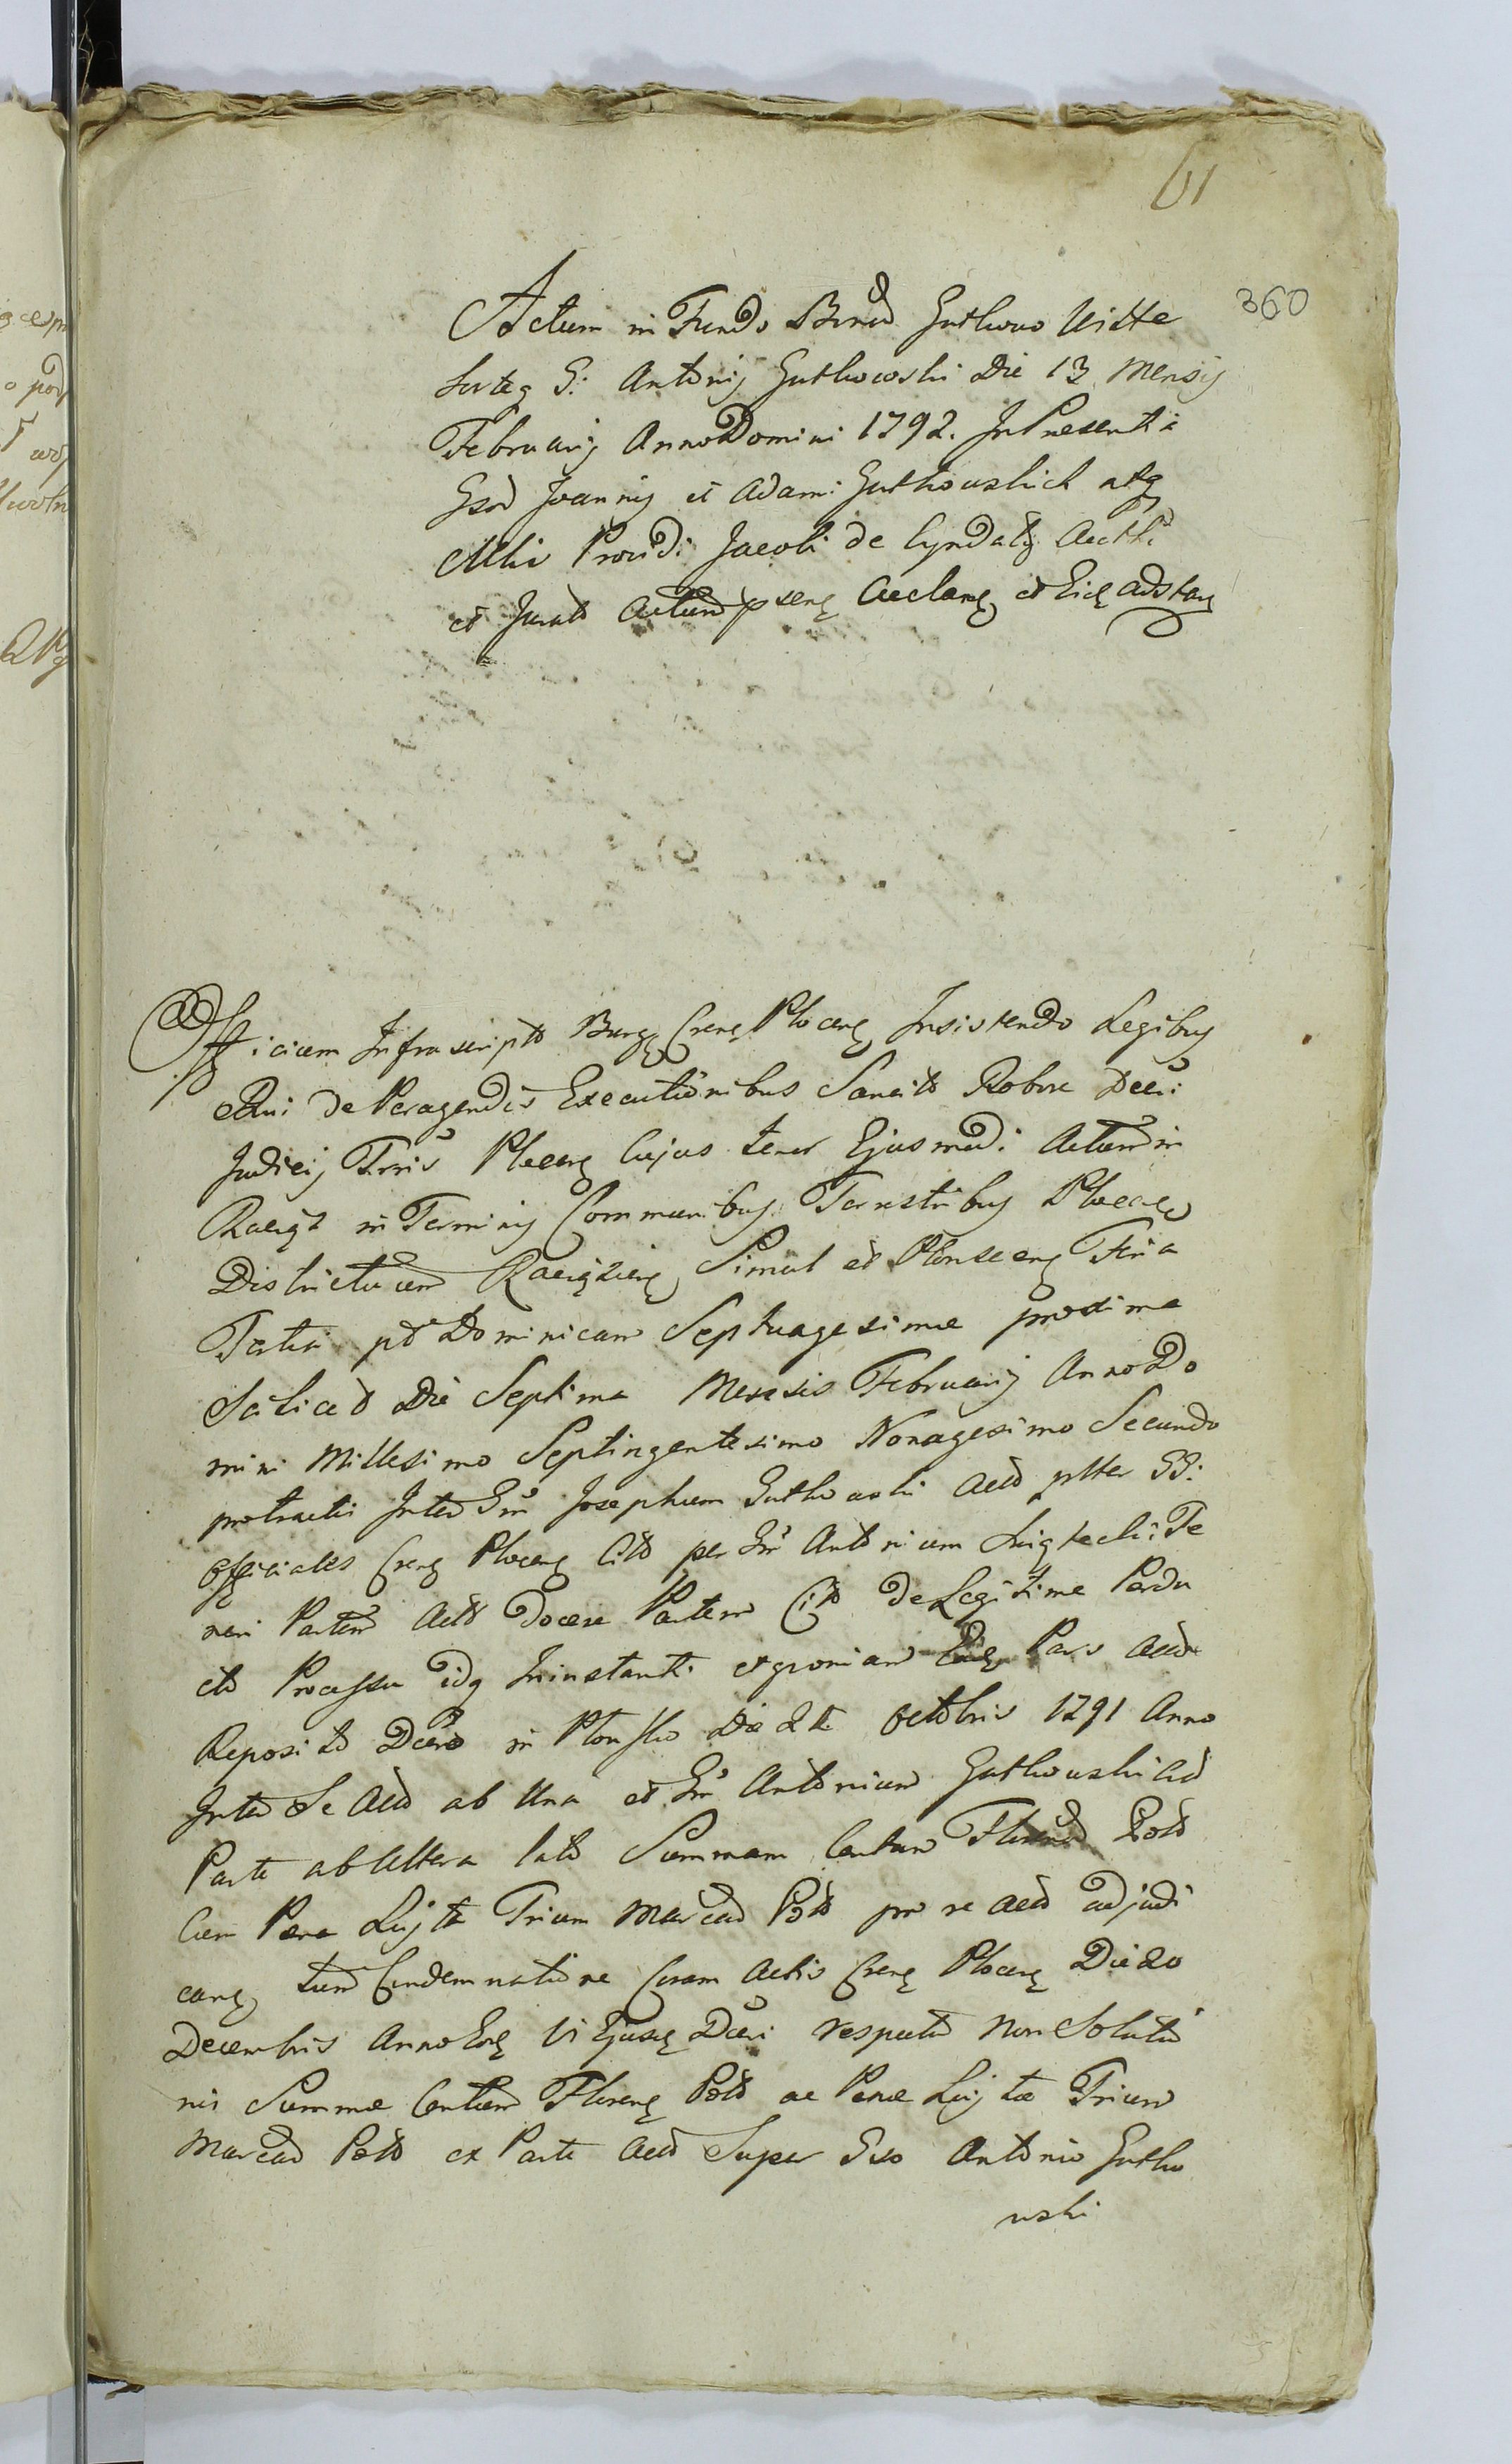 61
360
Actum in Fundo Bonrd Gutkowo Witte
Sorteq G: Antonij Gutkowski Die 13 Mensis
Februarij Anno Domini 1792. In Presentia
Gsod Joannis et Adami Gutkowskich atq
Mlis Providi Jacobi de Cyndaty
et Jurato Actum pseng et Eid adstan
Officium Infrascripto Burg Creng Ploceng Insistendo Legibus
Rni de Peragendis Executionibus Sancito Robore Decri
Judicij Trris Ploceng Cujus tenor Ejusmodi Actum in
Raciąż in Terminis Communibus Terrestribus Ploceng
Districtuum Raciążieng Simul et Plonsceng Feria
Tertia pt Dominicam Septuagesimae proxima
Scilicet Die Septima Mensis Februarij Anno Do
mini Millesimo Septingentesimo Nonagesimo Secundo
protracti Inter Gm Josephum Gutkowski Acto GG:
officiales Creng Ploceng Cito per Gm Antonium Te
neri Partem Acto Docere Partem Cito De Legitime Perdu
cto Processu idq Ininstanti Pars Acto
Reposito Dcro in Plonsko Die 2t Octobris 1791 Anno
Inter Se Acto ab Una et Gm Antonium Gutkowski Cit
Parte ab Altera lato Summam Centum Poto
Cum Paena Lujta Trium Marcar Poto pro re Acto adjudi
cang, tum Condemnatione Coram Actis Creng Ploceng Die 20
Decembris Anno Eod Vi Ejusd Dcri respectu non Solutio
nis Summae Centum Floreng Poto ac Paenae Lujtae Trium
Marcar Poto ex Parte Acto Super Gso Antonio Gutko
wski